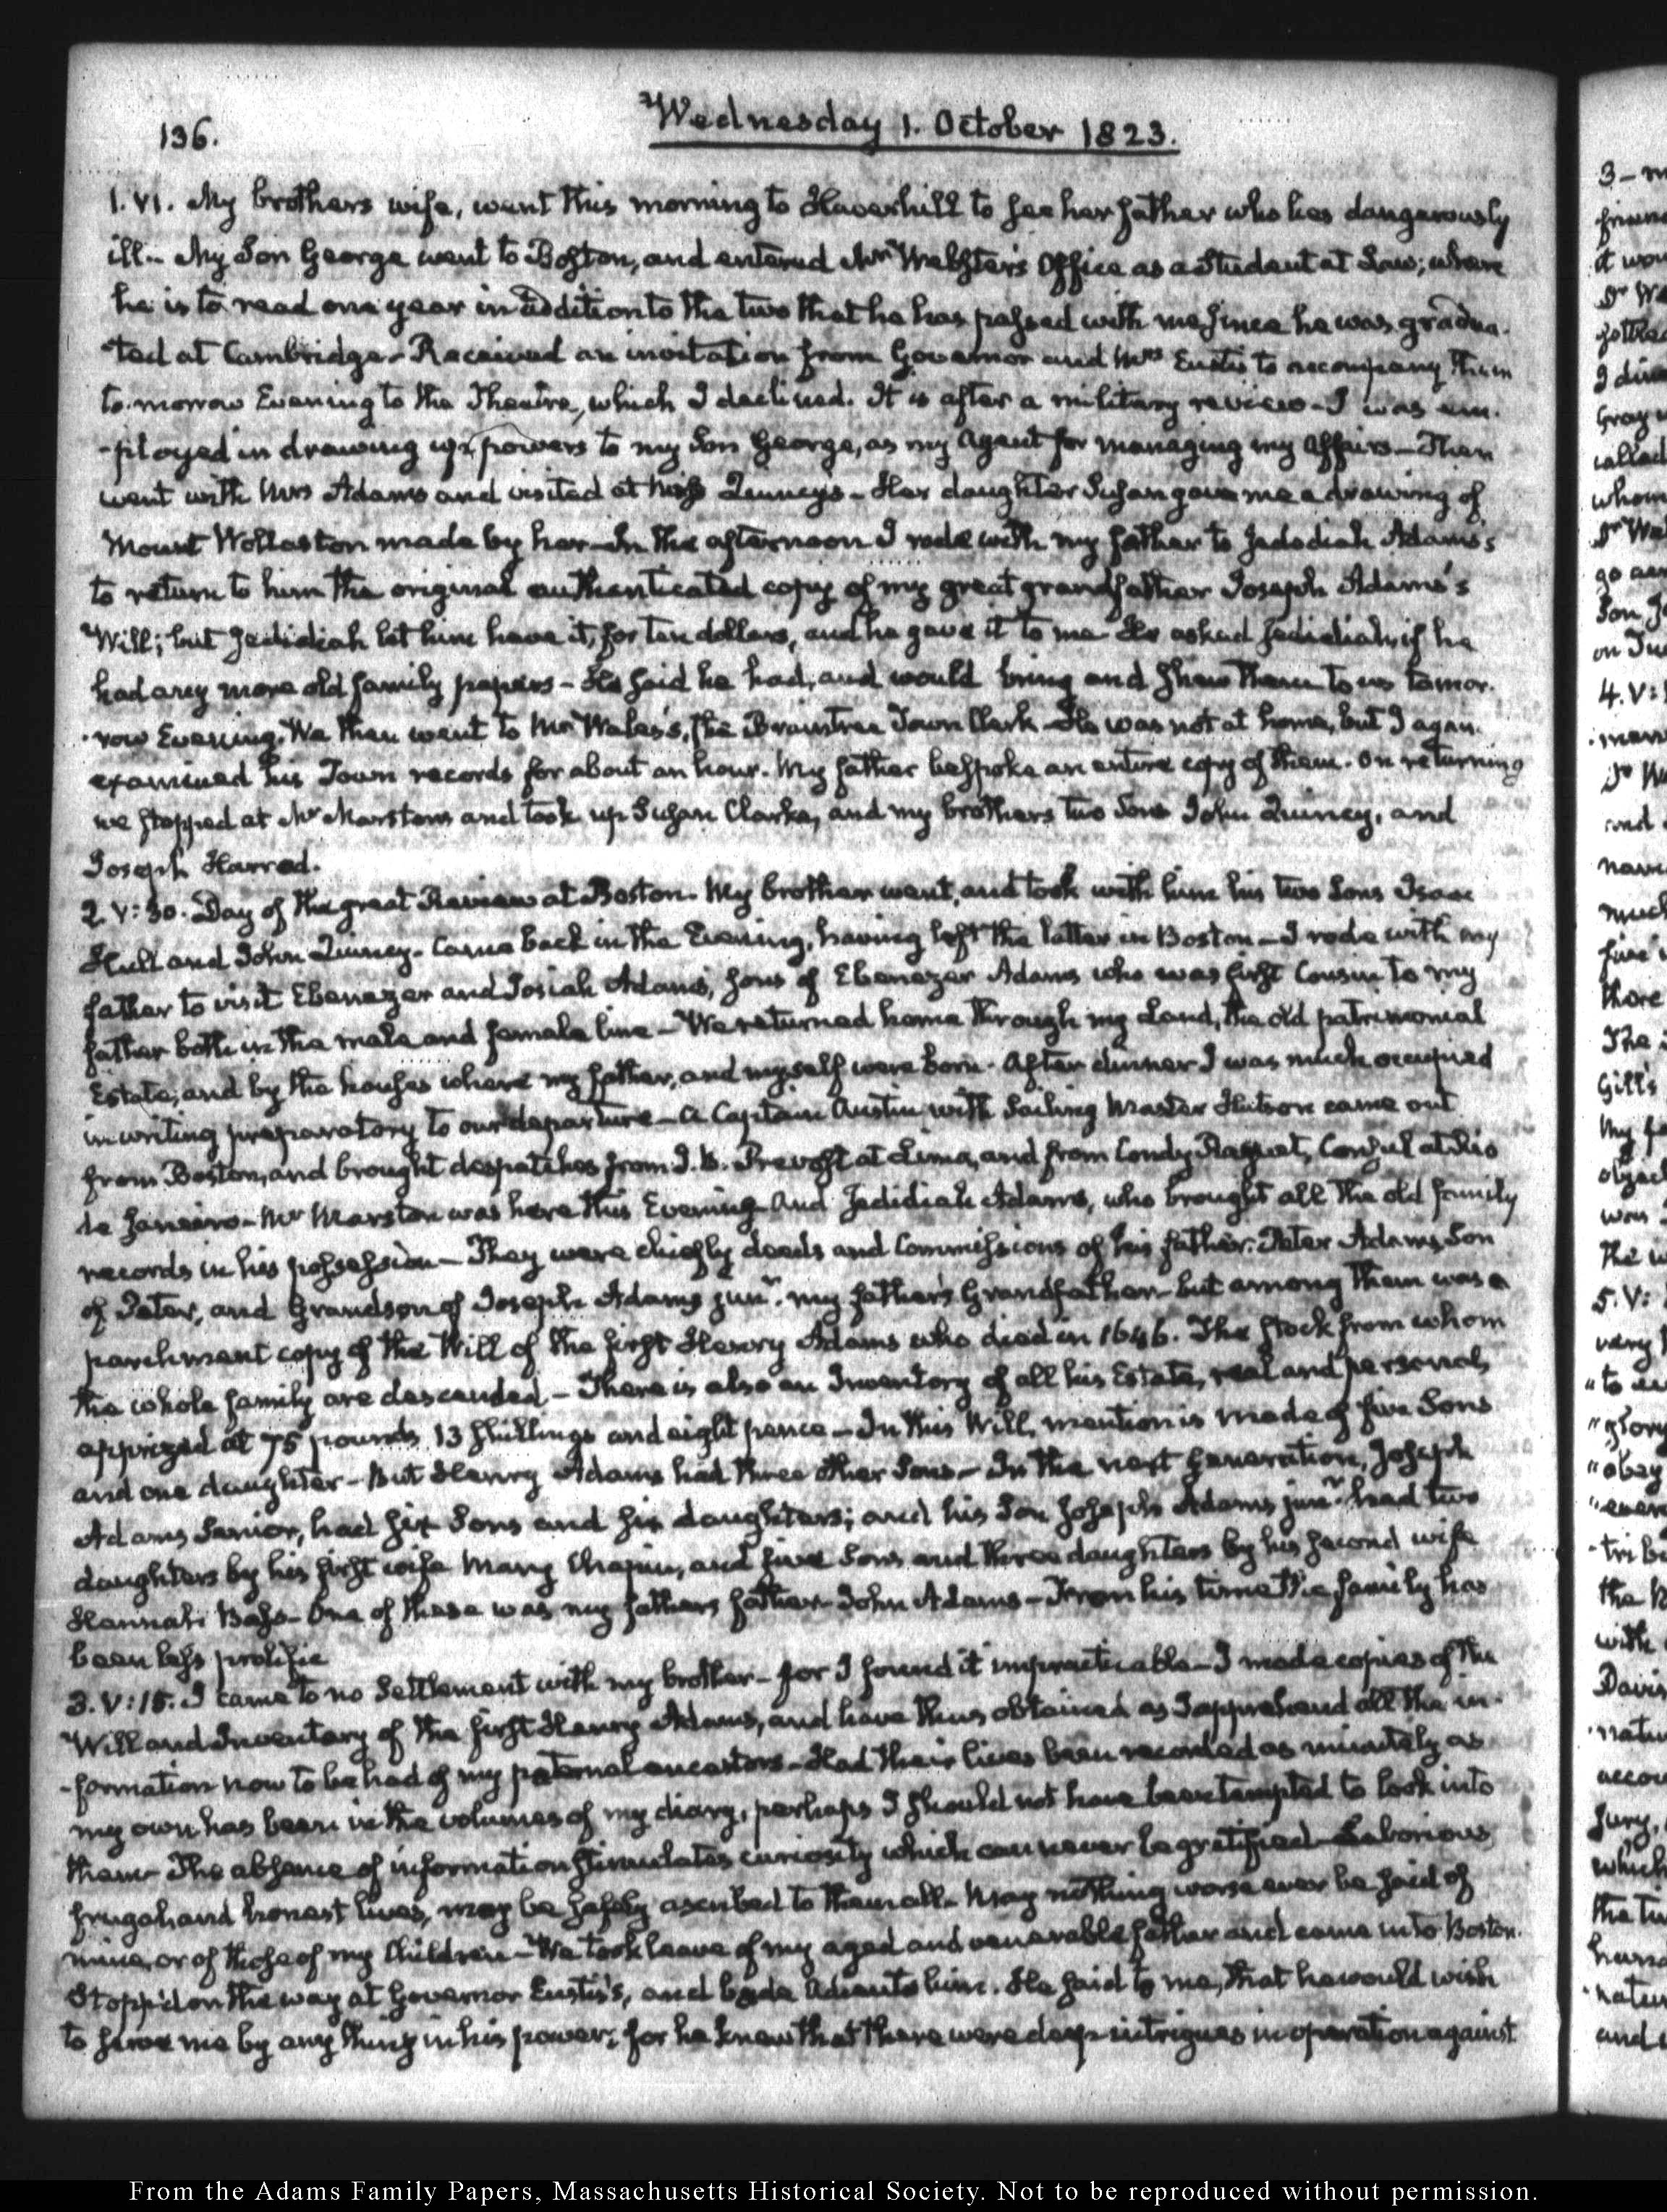 136.
Wednesday 1. October 1823.
1. VI. My brothers wife, went this morning to Haverhill to see her father who lies dangerously
ill - My Son George went to Boston, and entered Mr Webster's Office as a Student at Law; where
he is to read one year in addition to the two that he has passed with me, since he was gradua-
-ted at Cambridge - Received an invitation from Governor and Mrs Eustis to accompany them
to-morrow Evening to the Theatre, which I declined. It is after a military review - I was em-
-ployed in drawing up powers to my Son George, as my Agent for managing my affairs - Then
went with Mrs Adams and visited at Quincys - Her daughter Susan gave me a drawing of
Mount Wollaston made by her - In the afternoon I rode with my father to Jedediah Adams's
to return to him the original authenticated copy of my great grandfather Joseph Adams's
Will; but Jedidiah let him have it, for ten dollars, and he gave it to me - He asked Jedidiah, if he
had any more old family papers - He said he had, and would bring and shew them to us tomor-
-row Evening. We then went to Mr Wales's, the Braintree Town Clerk - He was not at home, but I again
examined his Town records for about an hour. My father bespoke an entire copy of them. On returning
we stopped at Mr Marstons and took up Susan Clarke, and my brothers two Sons John Quincy, and
Joseph Harrod.
2. V:30. Day of the great Review at Boston. My brother went, and took with him his two Sons Isaac
Hull and John Quincy. Came back in the Evening, having left the latter in Boston - I rode with my
father to visit Ebenezer and Josiah Adams, sons of Ebenezer Adams who was first Cousin to my
father both in the male and female line - We returned home through my Land, the old patrimonial
Estate; and by the houses where my father, and myself were born. After dinner I was much occupied
in writing preparatory to our departure - A Captain Austin with Sailing Master Hutson came out
from Boston, and brought despatches from J. B. Prevost at Lima, and from Condy Raguet, Consul at Rio
de Janeiro - Mr Marston was here this Evening and Jedidiah Adams, who brought all the old family
records in his possession - They were chiefly deeds and Commissions of his father. Peter Adams, Son
of Peter, and Grandson of Joseph Adams junr. my father's Grandfather - but among them was a
parchment copy of the Will of the first Henry Adams who died in 1646. The stock from whom
the whole family are descended - There is also an Inventory of all his Estate, real and personal,
apprized at 75 pounds 13 shillings and eight pence - In this Will, mention is made of five Sons
and one daughter - But Henry Adams had three other Sons - In the next Generation, Joseph
Adams Senior, had six Sons and six daughters; and his Son Joseph Adams junr. had two
daughters by his first wife Mary Chapin, and five Sons and three daughters by his second wife
Hannah Bass - One of these was my fathers father - John Adams - From his time the family has
been less prolific
3. V:15. I came to no Settlement with my brother - for I found it impracticable - I made copies of the
Will and Inventory of the first Henry Adams, and have thus obtained as I apprehend all the in-
-formation now to be had of my paternal ancestors - Had their lives been recorded as minutely as
my own has been in the volumes of my diary, perhaps I should not have been tempted to look into
them - The absence of information stimulates curiosity which can never be gratified - Laborious
frugal and honest lives, may be safely ascribed to them all - May nothing worse ever be said of
mine, or of those of my Children - We took leave of my aged and venerable father and came into Boston.
Stopp'd on the way at Governor Eustis's, and bade Adieu to him. He said to me, that he would wish
to serve me by any thing in his power; for he knew that there were deep intrigues in operation against
From the Adams Family Papers, Massachusetts Historical Society. Not to be reproduced without permission.